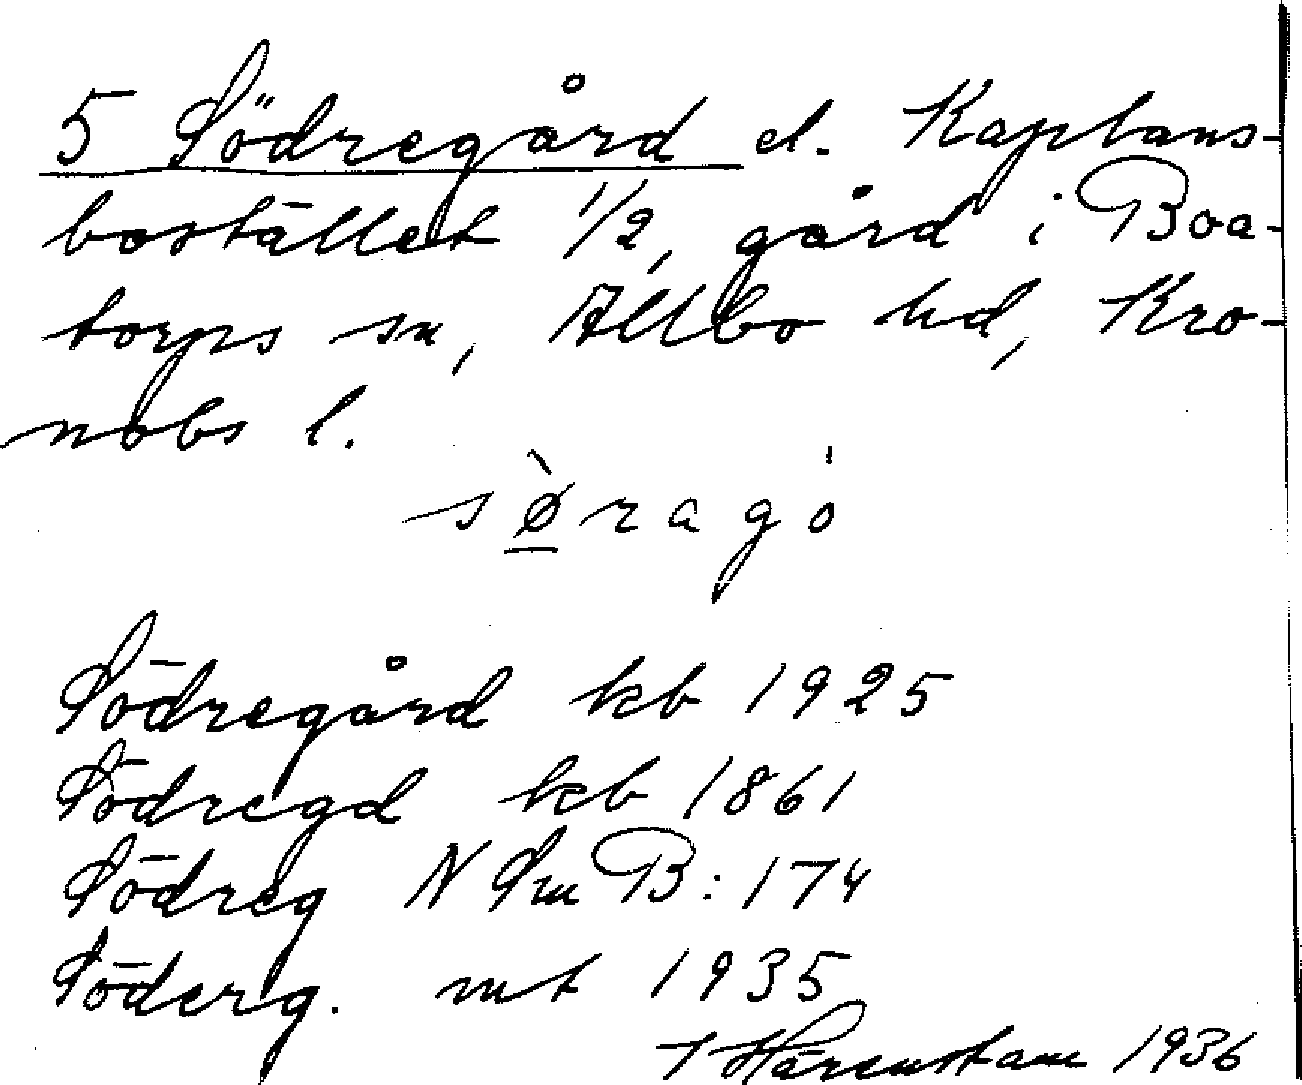 5 Södregård el. Kaplans-
bostället 1/2, gård i Boa-
torps sn, Allbo hd, Kro-
nobs l.
sø̀ragó
Södregård kb 1925
Södregd kb 1861
Södreg N Sm B: 174
Söderg. mt 1935
I Härenstam 1936